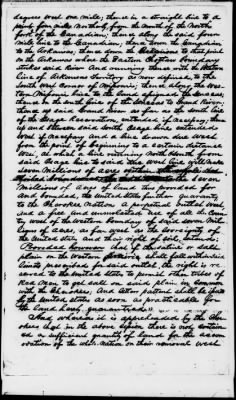 degrees west one mile; thence in a straight line to a
point four miles northerly, from the mouth of the North
fork of the Canadian; thence along the said four
mile line to the Canadian; thence down the Canadian
to the Arkansas; thence down the Arkansas to that point
on the Arkansas where the Eastern Choctaw boundary
strikes said River and running thence with the Western
line of Arkansas Territory as now defined, to the
South West corner of Missouri; thence along the Wes-
tern Missouri line to the land assigned the Senecas;
thence on the south line of the Senecas to Grand River;
thence up said Grand River as far as the south line
of the Osage Reservation, extended if necessary; then
up and between said South Osage line extended
west if necessary and a line drawn due west
from the point of beginning to a certain distance
West, at which a line running North and South from
said Osage line to said due west line will make
Seven Millions of acres within
the seven
Millions of acres of land thus provided for
and bounded, the United States further guaranty
to the Cherokee Nation, a perpetual outlet west
and a free and unmolested use of all the Coun-
try west of the Western boundary of said seven Mil-
lions of acres, as far west as the sovereignty of
the United States and their right of soil, extends;
Provided however that if the saline or salt
plain on the Western prairie shall fall within said
limits prescribed for said outlet, the right is re-
served to the United States to permit other tribes of
Red Men to get salt on said plain in common
with the Cherokees; And letters patent shall be issued
by the United States as soon as practicable for
the land hereby guarantied.
And whereas it is apprehended by the Che-
rokees that in the above cession there is not contain-
ed a sufficient quantity of land for the accom-
modation of the whole Nation on their removal west